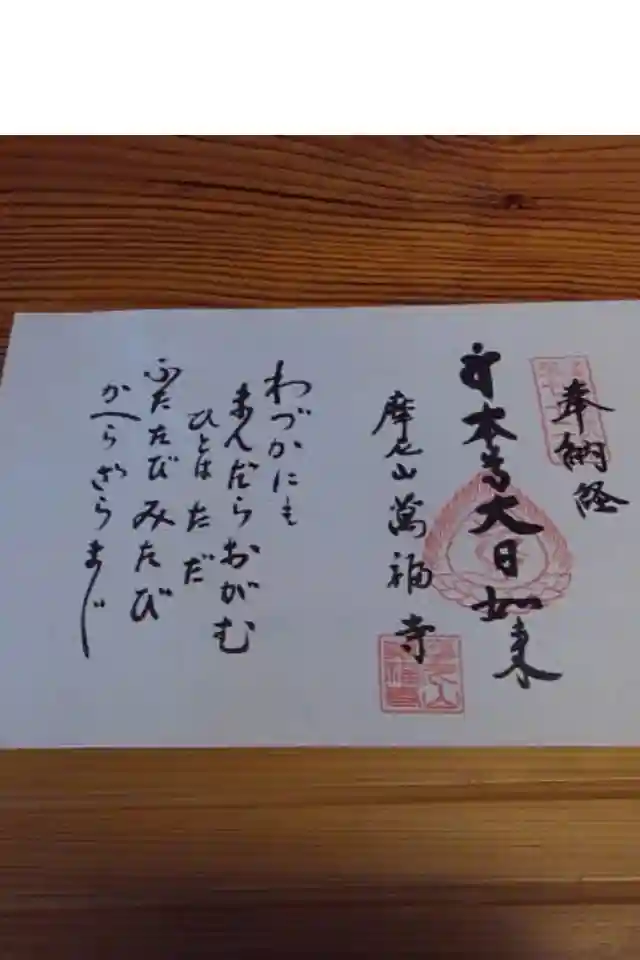 奉納経
本尊大日如来
摩尼山萬福寺
わづかにも
まんだらおがむ
ひとはただ
ふたたびみたび
かへらざらまじ